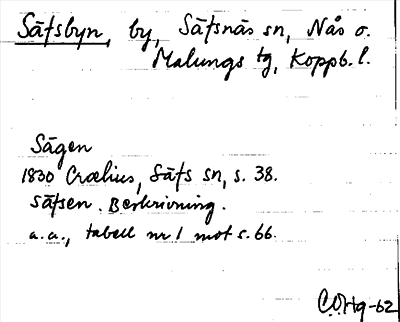 Säfsbyn, by, Säfsnäs sn, Nås o.
Malungs tg, Koppb. l.
Sågen
1830 Crælius, Säfs sn, s. 38.
Säfsen. Beskrivning.
a.a., tabell nr 1 mot s. 66.
C.O. Htg-62